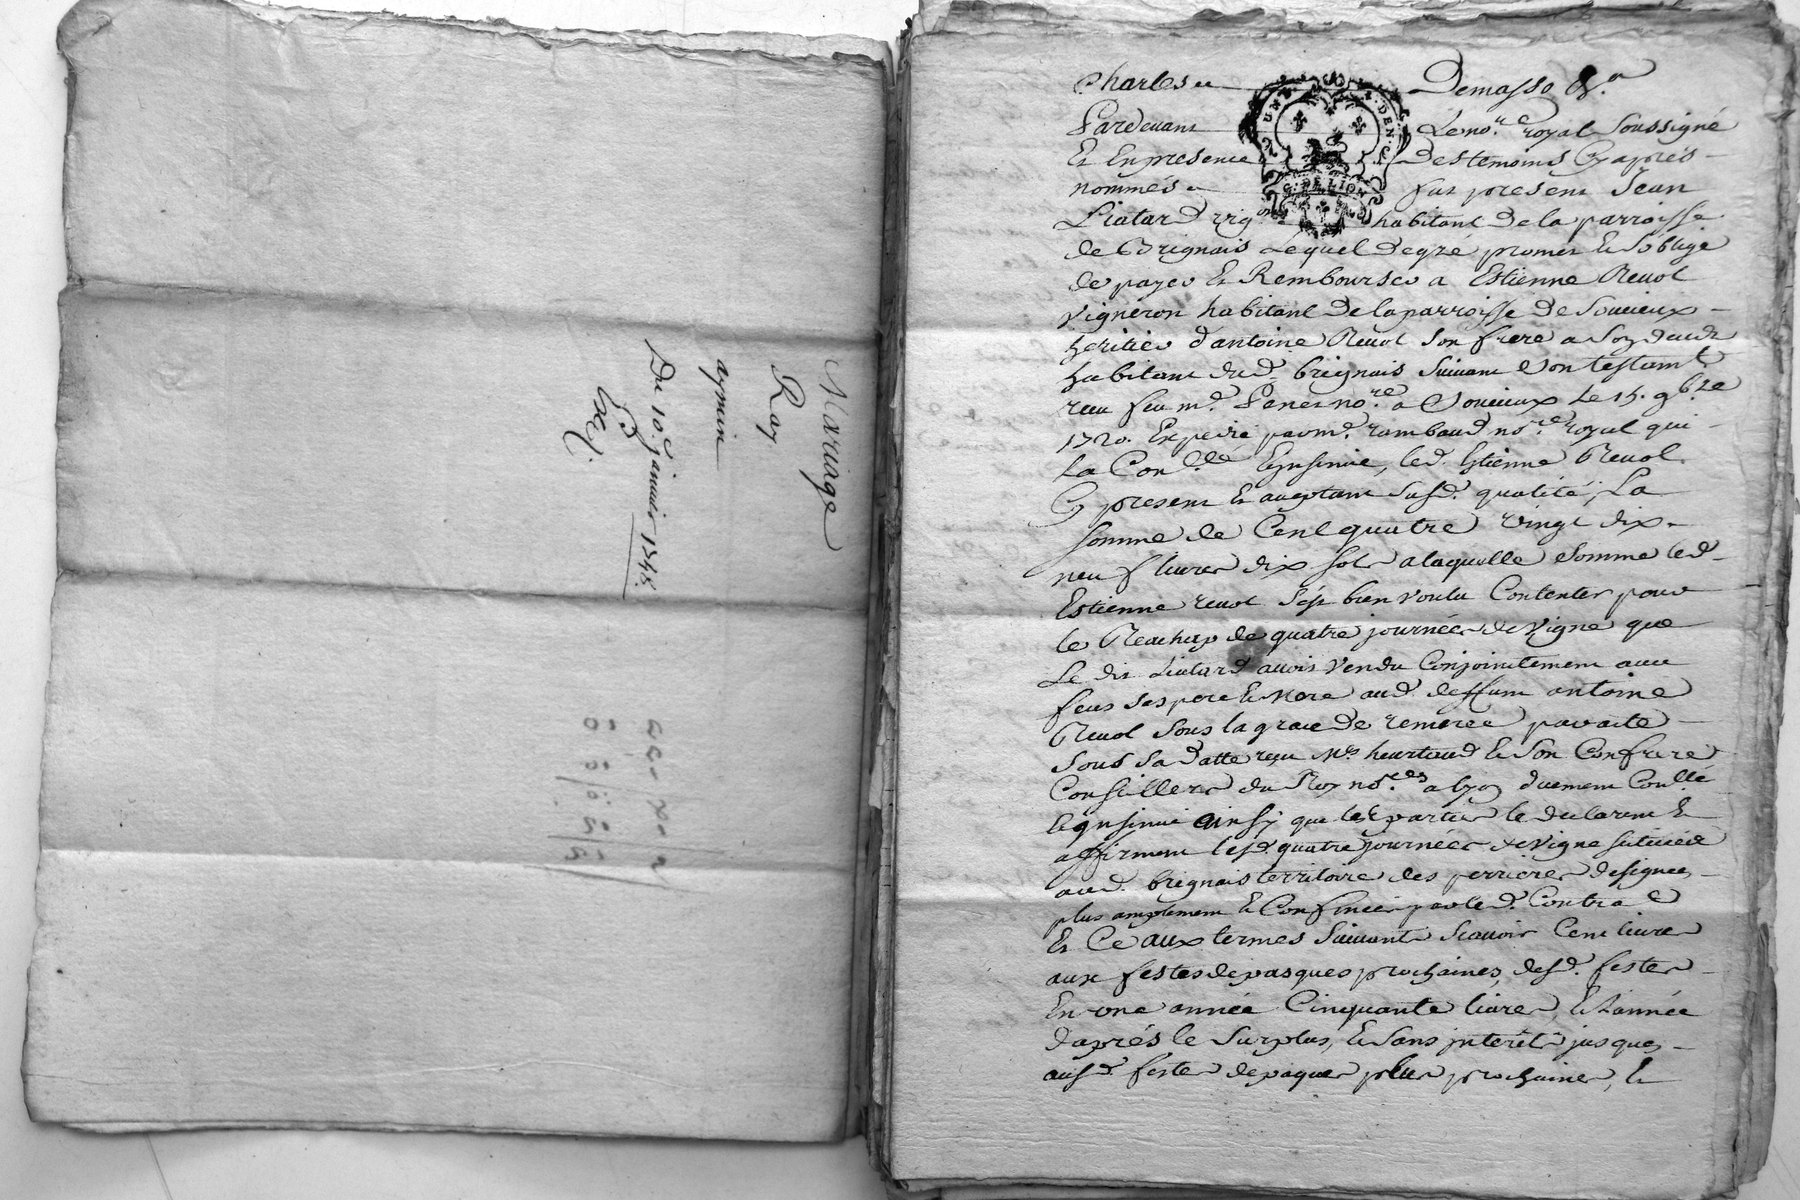 Mariage
Ray
aymin
Du 10e. janvier 1745.
Exp.
Charles Demasso &a.
UN S. DEN.
G. DE LION
Pardevant Le nore. royal soussigné
Et En presence des temoins Cy aprés
nommés fut present Jean
Liatard vigon habitant de la parroisse
de Brignais Lequel de gré promet et s'oblige
de payer Et Rembourser a Estienne Revol
vigneron habitant de la parroisse de Soucieux
heritier d'antoine Revol son frere a son vivant
habitant dud. brignais suivant son testamt.
receu feu me. nore. a Soucieux Le 15. 9bre
1720. Expedié par me. rambaud nore. royal qui
La Conllé Et insinué, led. Estienne Revol
Cy present Et aceptant susd. qualité, La
somme de Cent quatre vingt dix
neuf livres dix sols a laquelle somme led.
Estienne revol s'est bien voulu Contenter pour
le Reachapt de quatre journées de vigne que
Le dit Liatard avoit vendu Conjointement avec
feus ses pere et mere aud. deffunt antoine
Revol sous la grace de remerée par acte
sous sa datte receu Mes. heurtaud et son Confrere
Conseillers du Roy nores. a Lyon duement Conllé
et insinué ainsy que les parties le declarent Et
affirment lesd. quatre journées de vigne situées
aud. brignais territoire des perrieres designées
plus amplement et Confinées par led. Contrat
Et Ce aux termes suivants scavoir Cent livres
aux festes de pasques prochaines, desd. festes
En une année Cinquante livres, et l'année
d'aprés le surplus, et sans interêts jusques
ausd. festes de paques plus prochaines, et